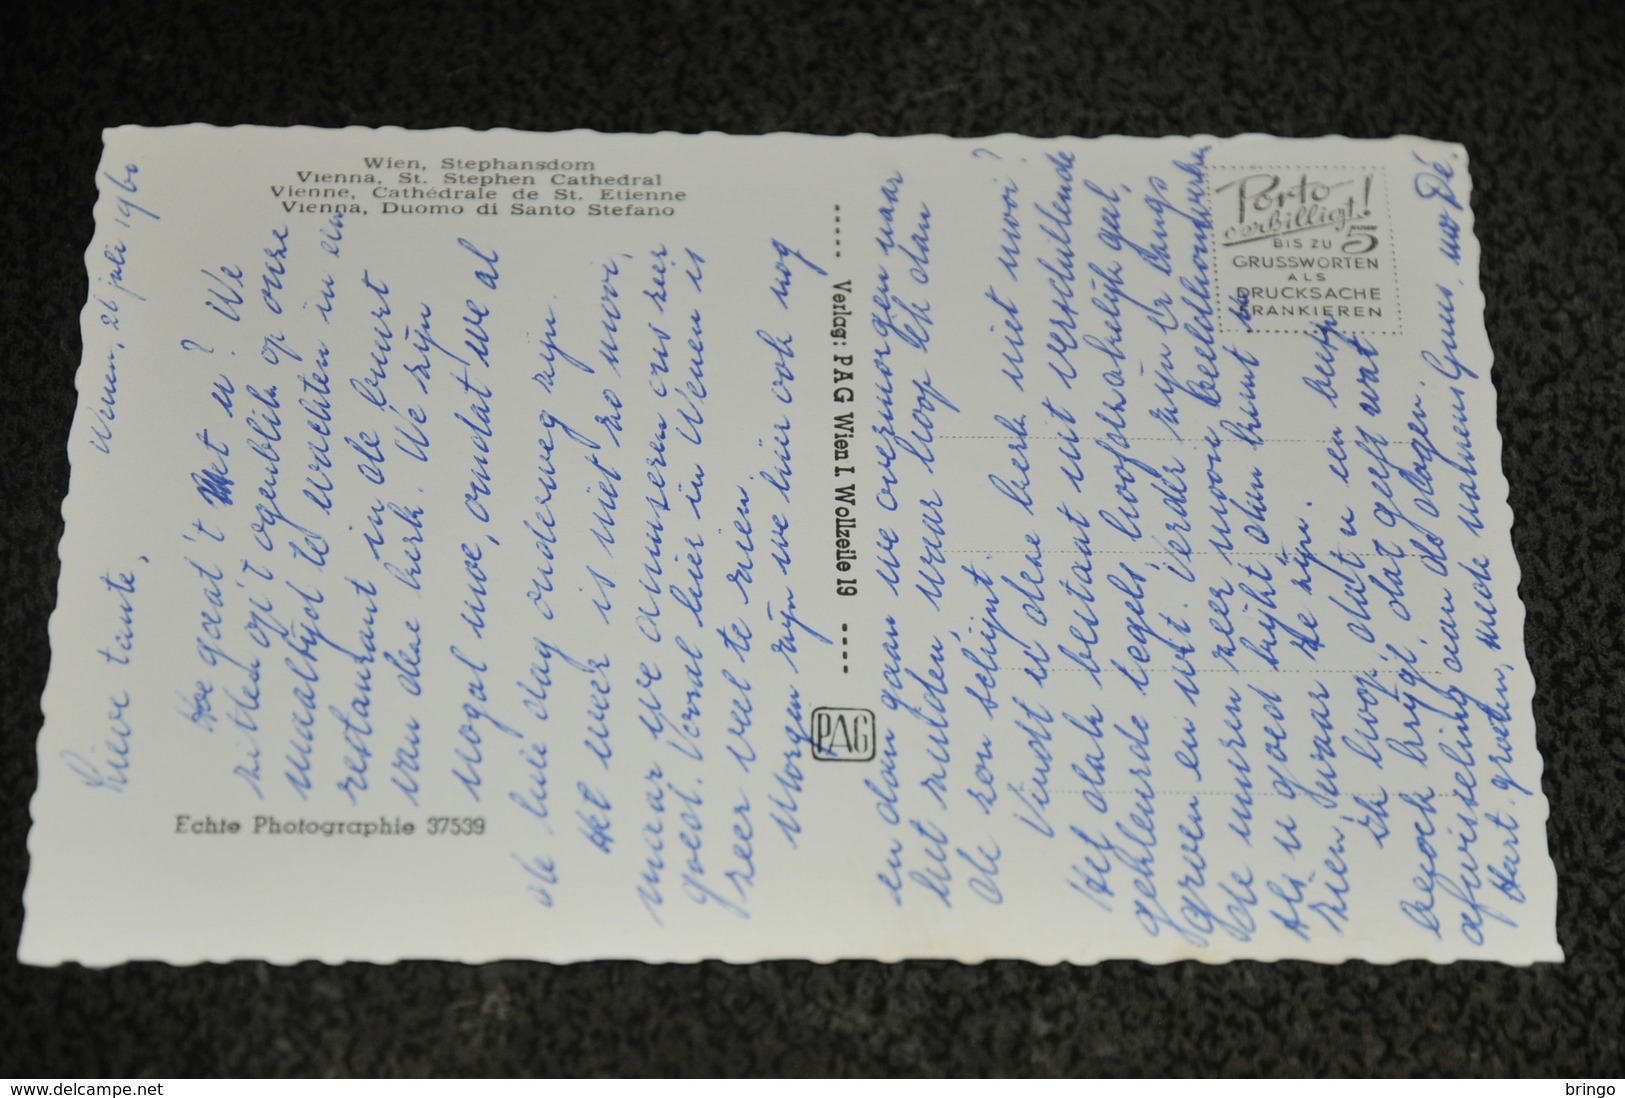 Wien, Stephansdom
Vienna, St. Stephen Cathedral
Vienne, Cathédrale de St. Etienne
Vienna, Duomo di Santo Stefano
Wenen, 26 juli 1960
Lieve tante,
Hoe gaat 't met u? We
zitten op 't ogenblik op onze
maaltijd te wachten in een
restaurant in de buurt
van deze kerk. We zijn
nogal moe, omdat we al
de hele dag onderweg zijn.
Het weer is niet zo mooi,
maar we amuseren ons zeer
goed. Vooral hier in Wenen is
zeer veel te zien.
Morgen zijn we hier ook nog
en dan gaan we overmorgen naar
het zuiden, waar hoop ik dan
de zon schijnt.
Vindt U deze kerk niet mooi?
Het dak bestaat uit verschillende
gekleurde tegels, hoofdzakelijk geel,
groen en wit. Verder zijn er langs
de muren zeer mooie beeldhouwwerken
Als u goed kijkt dan kunt u
zien, waar ze zijn.
Ik hoop, dat u een beetje
bezoek krijgt, dat geeft wat
afwisseling aan de dagen.
Hart. groeten, mede namens Guus, uw Dé.
Echte Photographie 37539
Verlag: PAG Wien I. Wollzeile 19
PAG
Porto
verbilligt!
BIS ZU 5
GRUSSWORTEN
ALS
DRUCKSACHE
FRANKIEREN
© delcampe.net
bringo